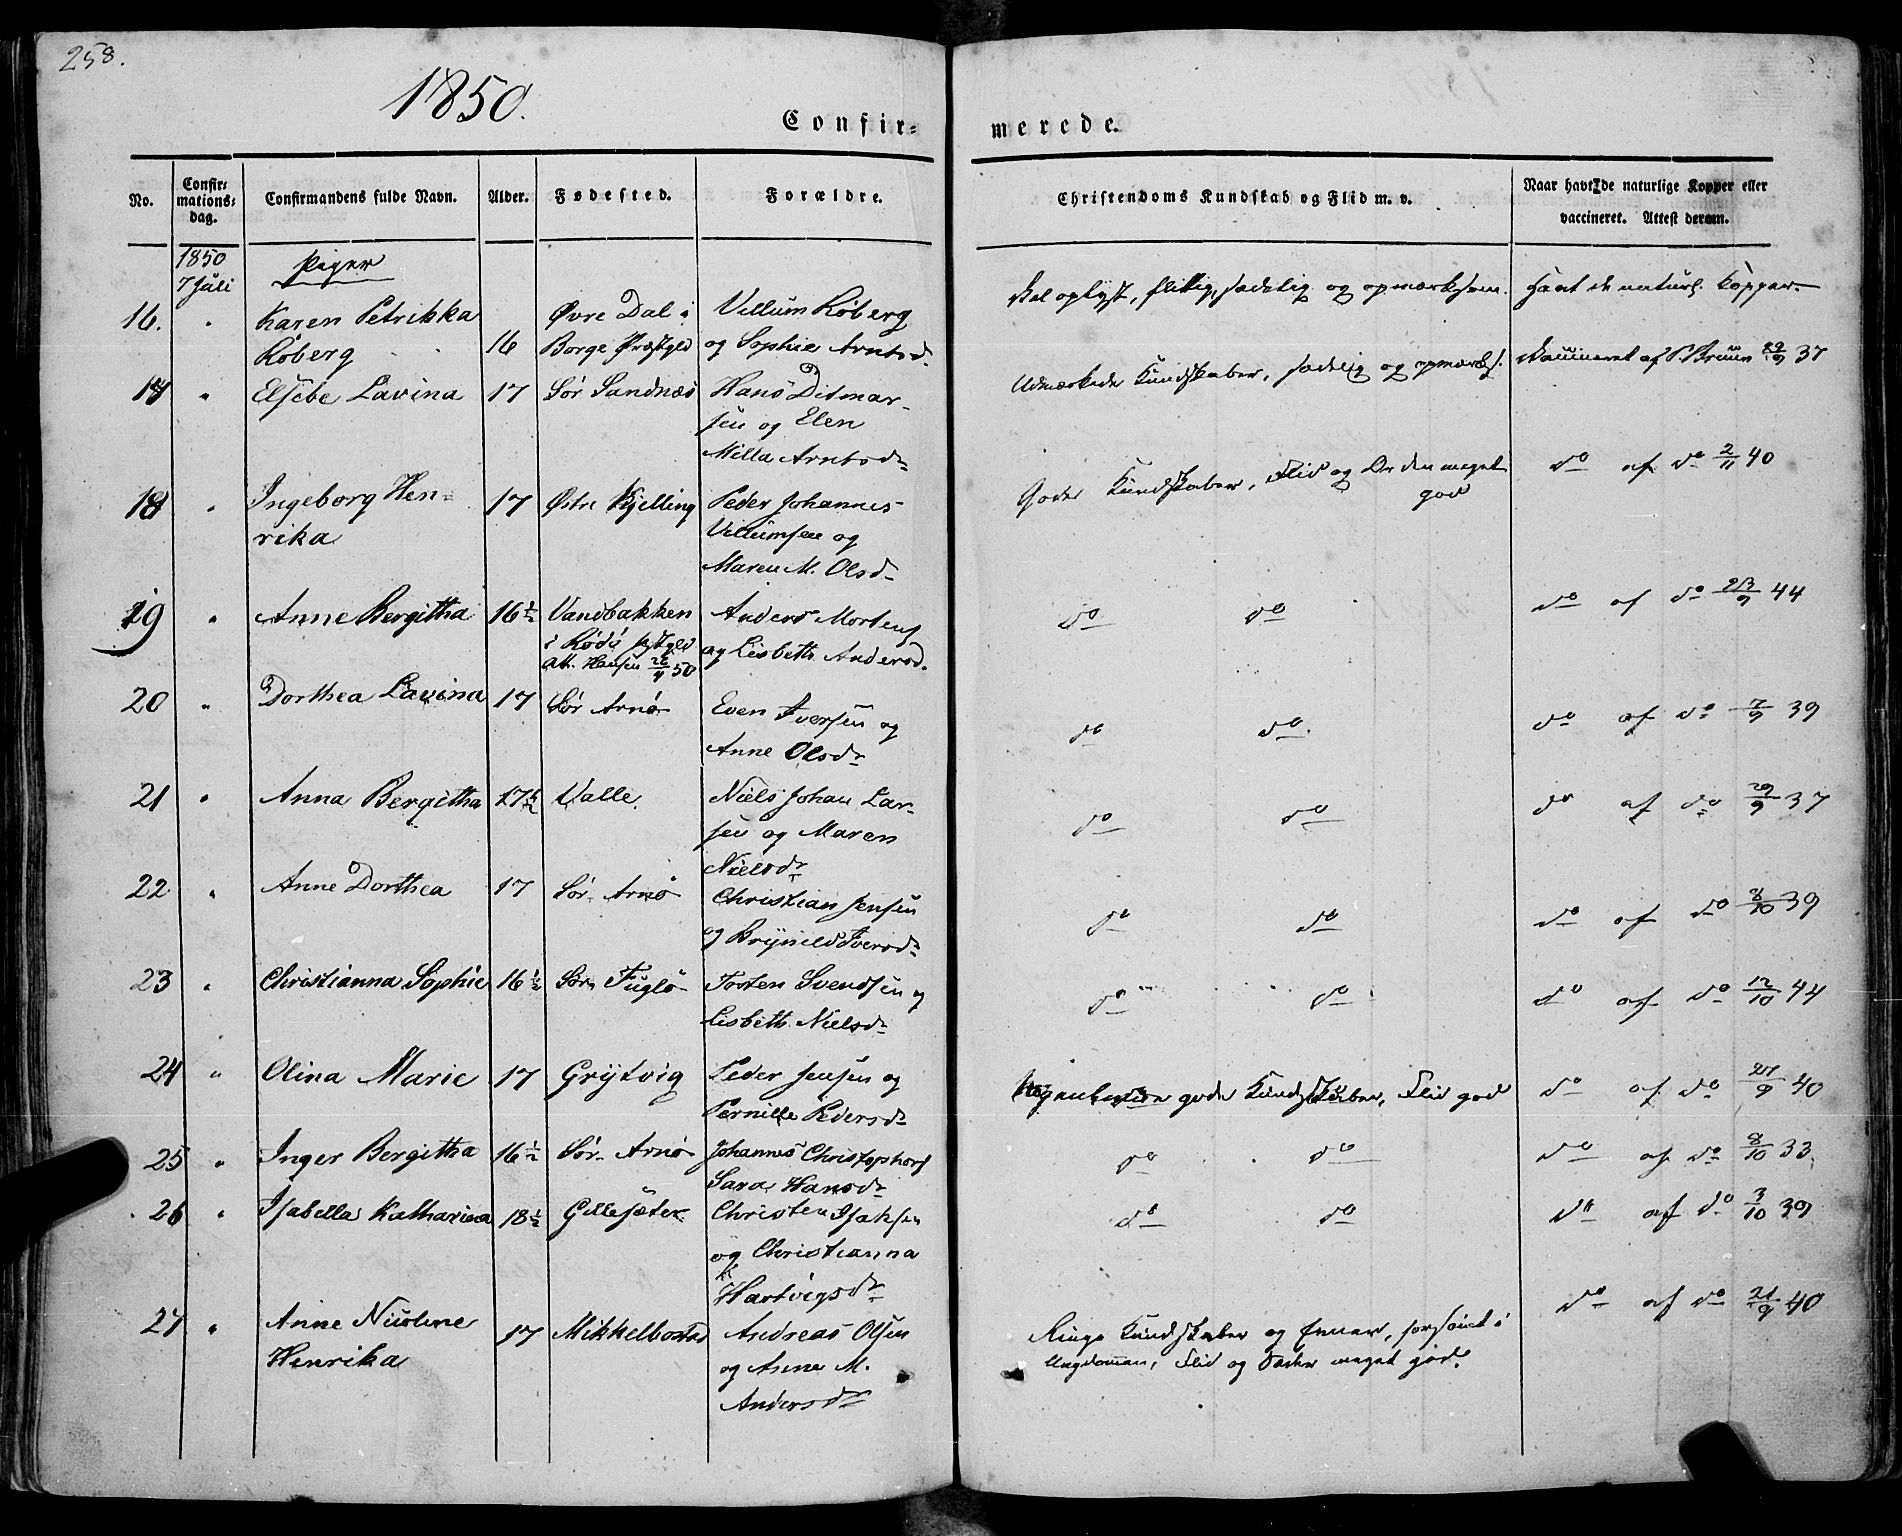 258.
1850.
Confir=
merede.
No.
Confir=
mations=
dag.
Confirmandens fulde Navn.
Alder.
Fødested.
Forældre.
Christendoms Kundskab og Flid m. v.
Naar havt de naturlige Kopper eller
vaccineret. Attest derom.
1850
7 Juli
Piger
16. " Karen Petrikka
Røberg
16
Øvre Dal i
Borge Præstgld
Villum Røberg
og Sophie Arntsdr
Vel oplyst, flittig, sædelig og opmærksom.
Havt de naturl. Kopper
17 " Elsebe Lavina 17 Sør Sandnæs
Hans Ditmar
sen og Elen
Milla Arntsdr
Udmærkede Kundskaber, sædelig og opmærks.
Vaccineret af P. Bruun 29/9 37
18 " Ingeborg Hen-
rika
17 Østre Kjelling
Peder Johannes
Villumsen og
Maren M. Olsdr
Gode Kundskaber, Flid og Orden meget
god
do af do 2/11 40
19 " Anne Bergitha 16½ Vandbakken
i Rødø Pstgld
Att. Hansen 26/4 50
Anders Mortens
og Lisbeth Andersd.
do do
do af do 23/9 44
20 " Dorthea Lavina 17 Sør Arnø
Even Iversen og
Anne Olsdr
do do.
do af do 7/9 39
21 " Anna Bergitha 17½ Valle.
Niels Johan Lar-
sen og Maren
Nielsdr
do do
do af do 29/9 37
22 " Anne Dorthea 17 Sør Arnø
Christian Jensen
og Brynild Iversdr
do do
do af do 8/10 39
23 " Christianna Sophie 16½ Sør Fuglø
Tosten Svendsen og
Lisbeth Nielsdr
do do
do af do 12/10 44
24 " Olina Marie 17 Grytvig
Peder Jensen og
Pernille Pedersdr
gode Kundskaber, Flid god
do af do 27/9 40
25 " Inger Bergitha 16½ Sør Arnø
Johannes Christophers
Sara Hansdr
do do
do af do 8/10 33
26 " Isabella Katharina 18½ Gillesæter
Christen Isaksen
og Christianna
Hartvigsdr
do do
do af do 3/10 39
27 " Anne Nicoline
Henrika
17 Mikkelbostad
Andreas Olsen
og Anne M.
Andersdr
Ringe Kundskaber og Evner, forsømt i
Ungdommen, Flid og Sæder meget god.
do af do 21/9 40